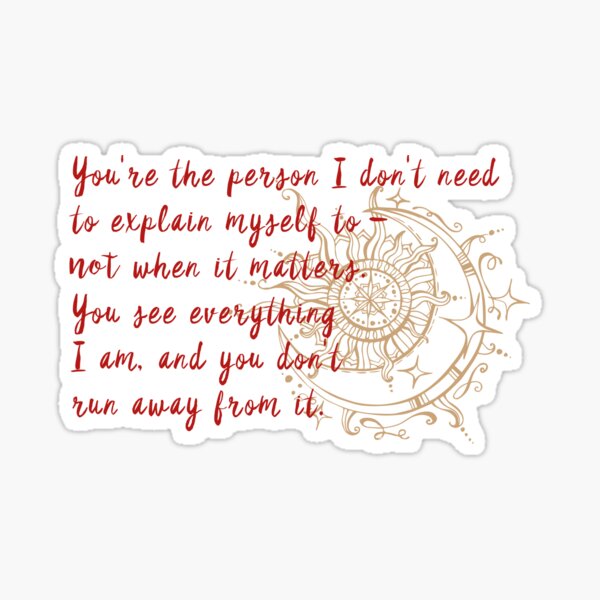 You're the person I don't need
to explain myself to –
not when it matters.
You see everything
I am, and you don't
run away from it.